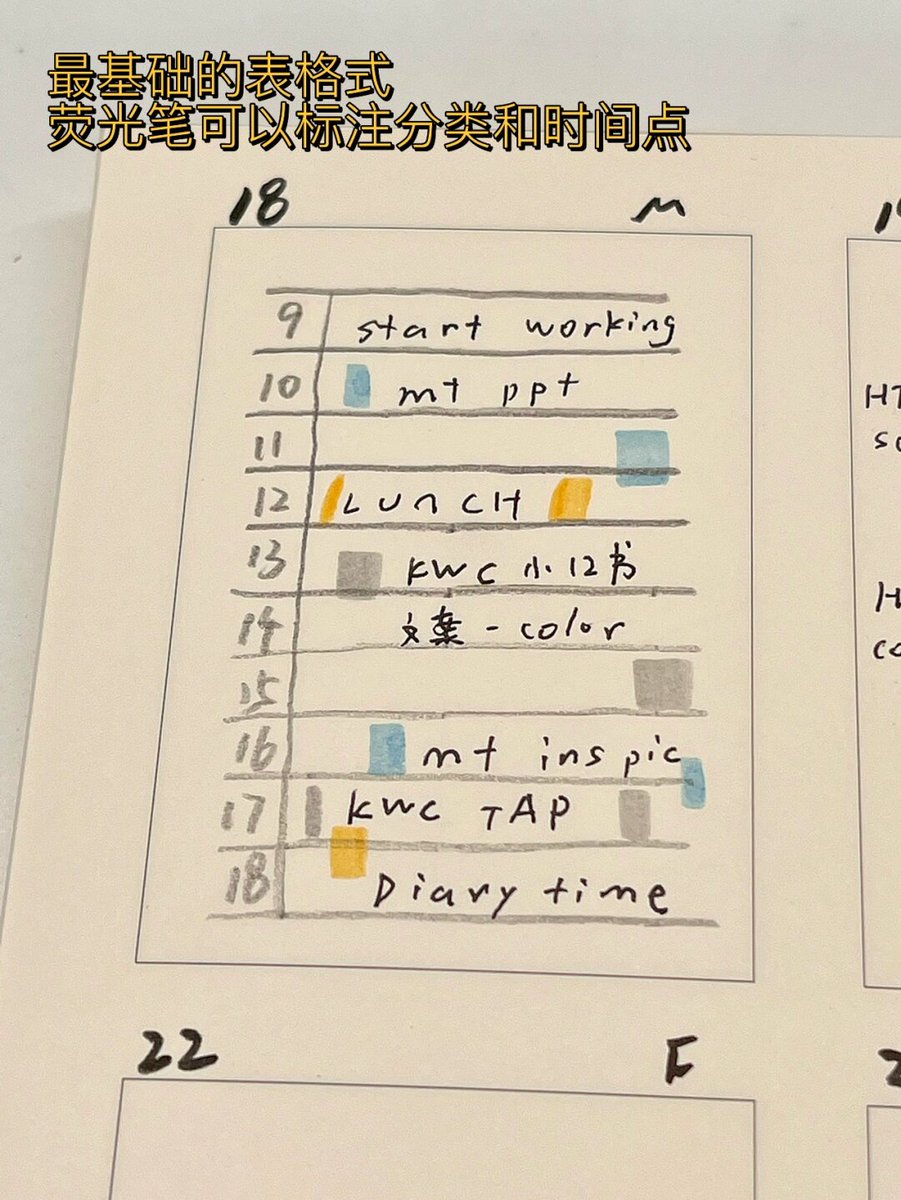 最基础的表格式
荧光笔可以标注分类和时间点
18 M
9 start working
10 mt ppt
11
12 LUNCH
13 KWC 小12书
14 文案-color
15
16 mt ins pic
17 KWC TAP
18 Diary time
22 F